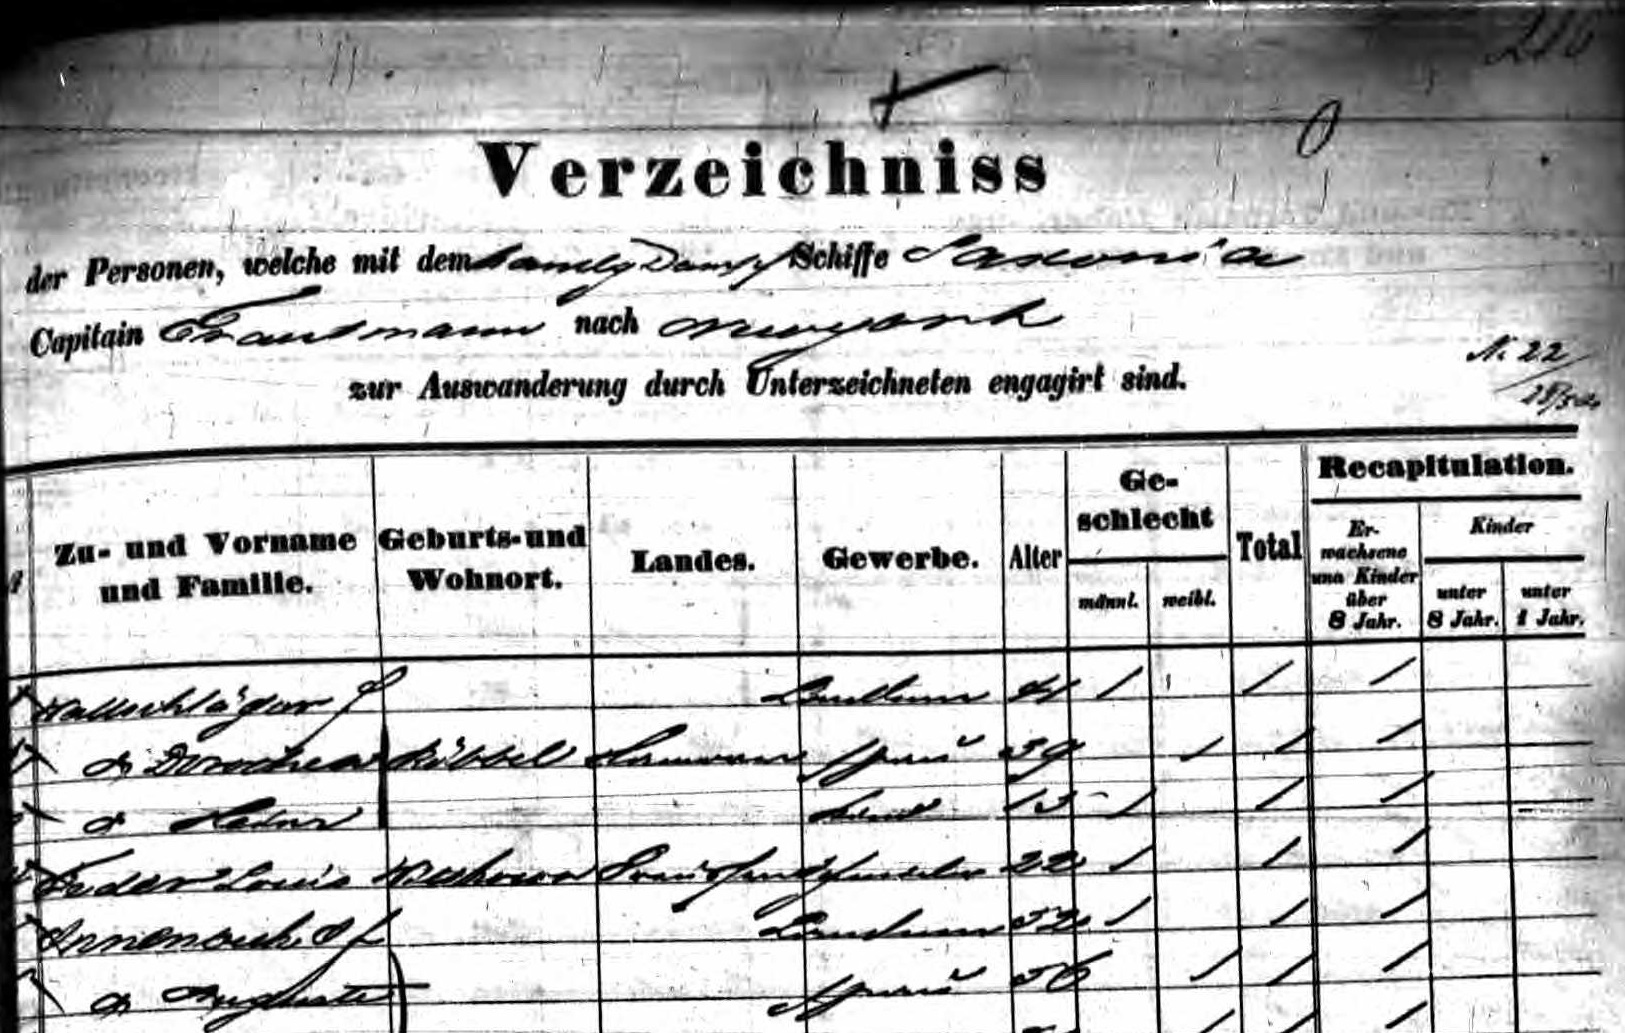 210
Verzeichniss
der Personen, welche mit dem Dampf Schiffe Saxonia
Capitain Trautmann nach Newyork
zur Auswanderung durch Unterzeichneten engagirt sind.
N. 22
Zu- und Vorname und Familie. Geburts- und Wohnort. Landes. Gewerbe. Alter Geschlecht männl. weibl. Total Recapitulation. Erwachsene und Kinder über 8 Jahr. Kinder unter 8 Jahr. unter 1 Jahr.
Wallschläger F Landmann 41 / / /
do Dorothea Röbbel Hannover Frau 39 / / /
do Heinr Kind 13 / / /
Feder Louis Preussen 22 / / /
Landmann 52 / / /
do Auguste Frau 56 / / /